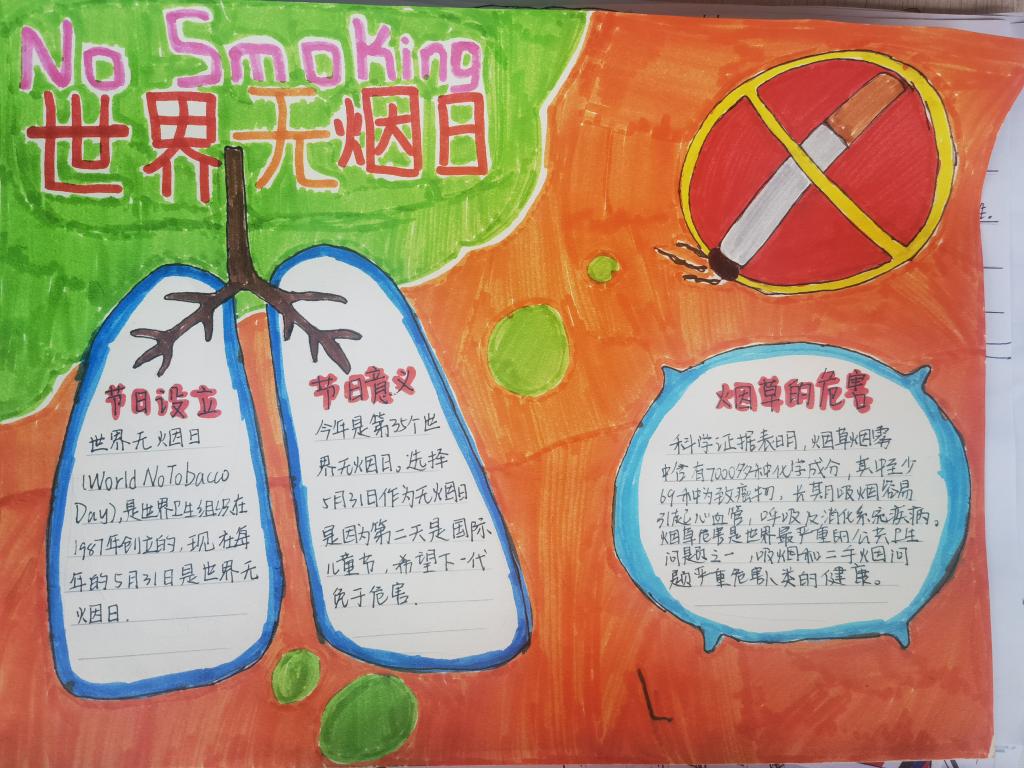 No Smoking
世界无烟日
节日设立
世界无烟日
(World No Tobacco
Day),是世界卫生组织在
1987年创立的,现在每
年的5月31日是世界无
烟日.
节日意义
今年是第35个世
界无烟日。选择
5月31日作为无烟日
是因为第二天是国际
儿童节,希望下一代
免于危害.
烟草的危害
科学证据表明,烟草烟雾
中含有7000多种化学成分,其中至少
69种为致癌物,长期吸烟容易
引起心血管,呼吸及消化系统疾病。
烟草危害是世界最严重的公共卫生
问题之一,吸烟和二手烟问
题严重危害人类的健康。